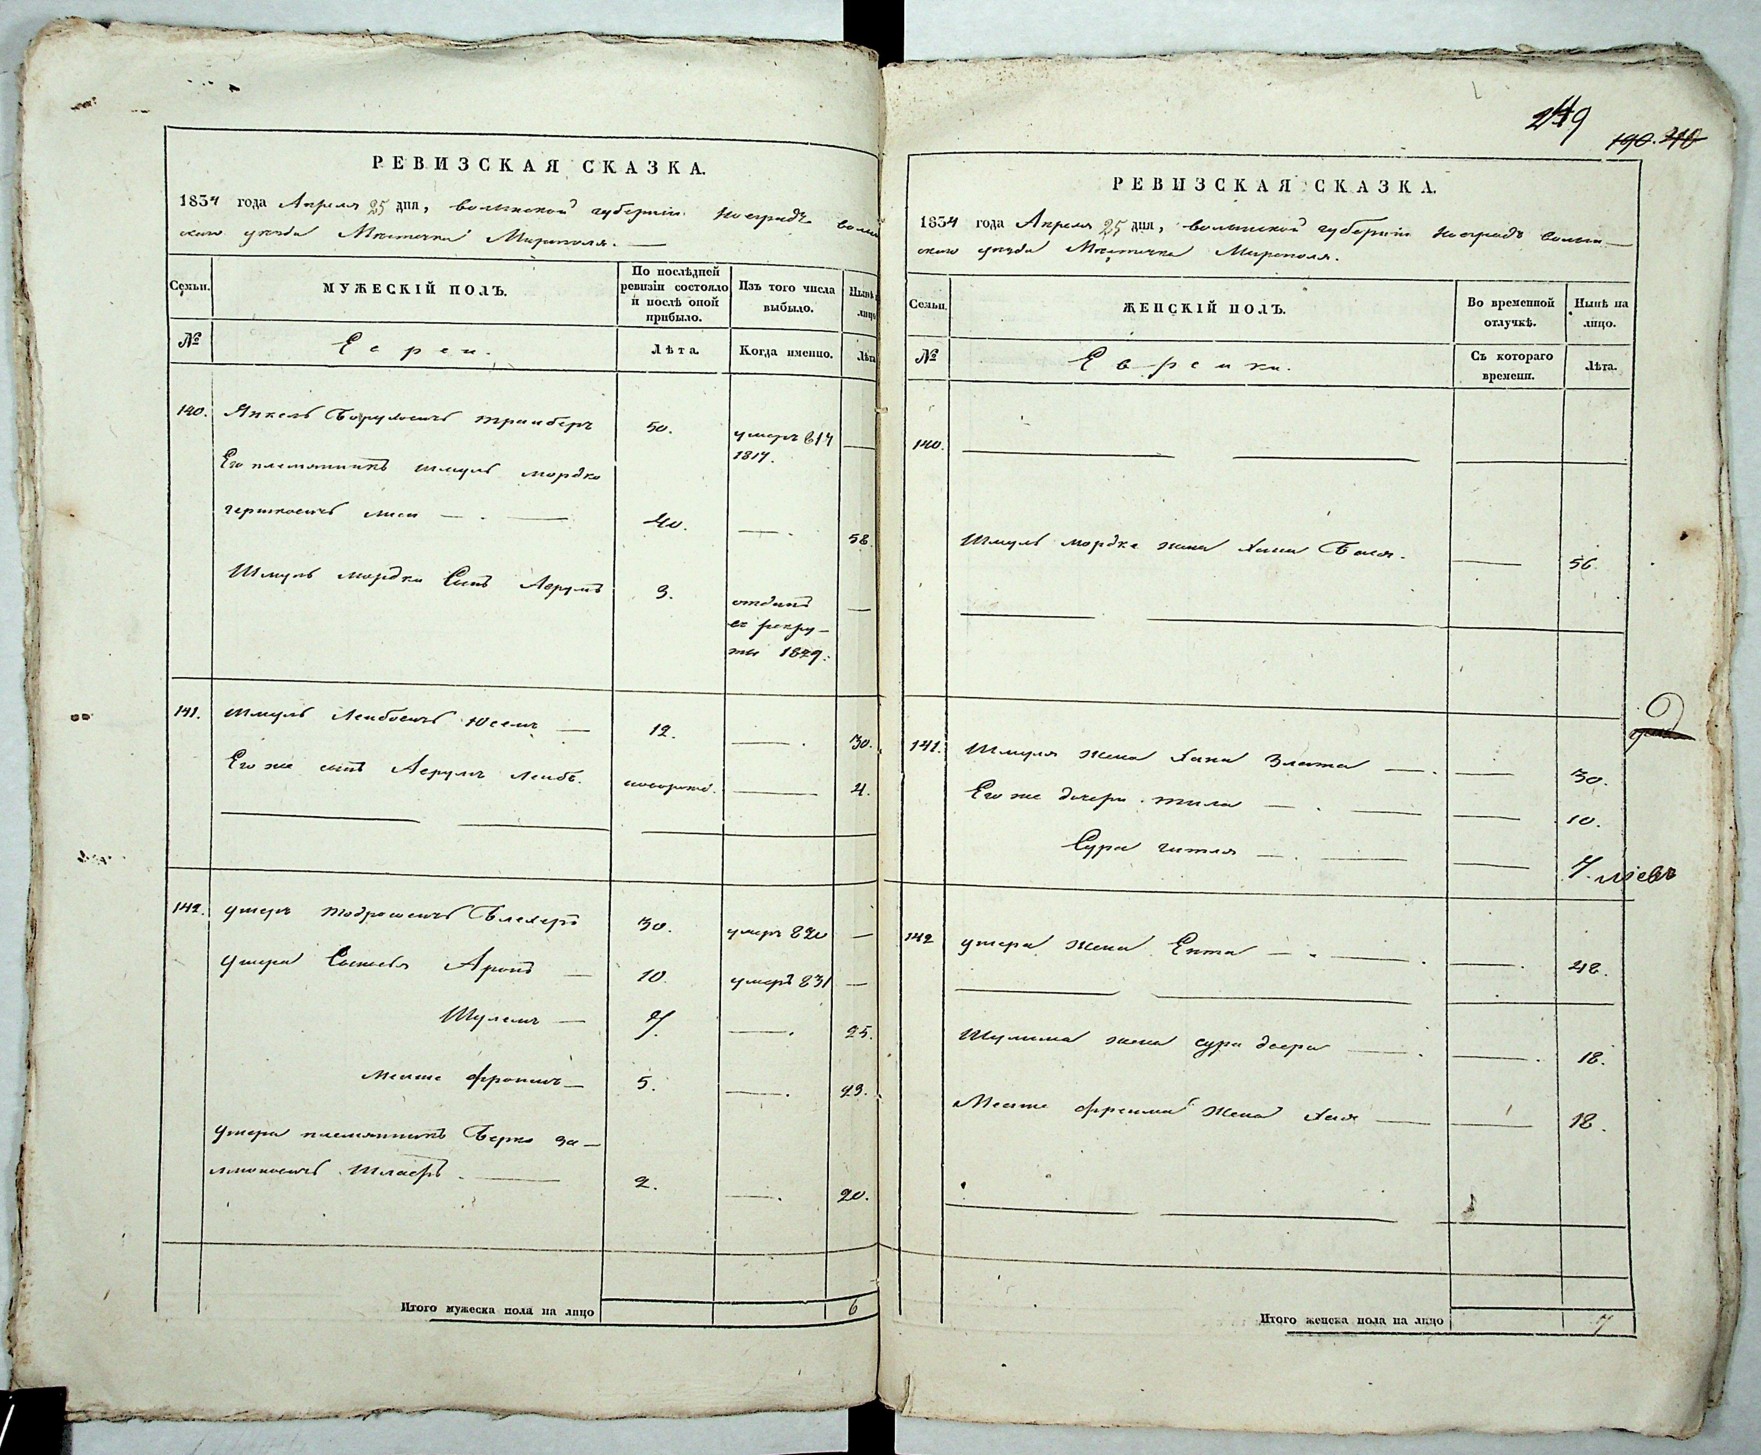 РЕВИЗСКАЯ СКАЗКА.
1834 года Апреля 25 дня, волынской губернии Новградъ волын
скаго уезда Местечка Мирополя.
Семьи.
МУЖЕСКІЙ ПОЛЪ.
По послѣдней
ревизіи состояло
и послѣ оной
прибыло.
Изъ того числа
выбыло.
Нынѣ
лицо
№
Евреи.
Лѣта
Когда именно.
Лѣта
140.
Янкель Борухович
50.
умеръ 814
1814.
Его племянникъ Шмуль мордко
гершковичъ
40.
58.
Шмуль мордки Сынъ Аврумъ
3.
отданъ
въ рекру-
ты 1829.
141.
Шмуль Лейбовичъ
12.
30.
Его же сынъ Аврумъ Лейбъ.
новорожд.
4.
142.
30.
умеръ 820
Сыновья Аронъ
10.
умеръ 831
Шулемъ
7.
25.
5.
23.
племянникъ Берко За-
2.
20.
Итого мужеска пола на лицо
6
249
190. 210
РЕВИЗСКАЯ СКАЗКА.
1834 года Апреля 25 дня, волынской губерніи Новградъ волын-
скаго уезда Местечка Мирополя.
Семьи.
ЖЕНСКІЙ ПОЛЪ.
Во временной
отлучкѣ.
Нынѣ на
лицо.
№
Еврейки.
Съ котораго
времени.
Лѣта.
140.
Шмуль мордка жена Хана Бася.
56.
141.
Шмуля жена Хана Злата
30.
Его же дочери
10.
Сура гитля
7.
142
жена Ента
48.
Шулима жена сура двера
18.
жена Хая
18.
Итого женска пола на лицо
7